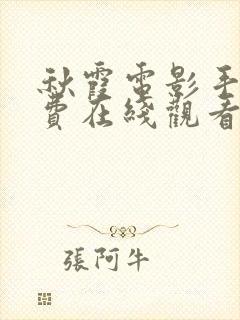 秋霞電影手
費在綫觀看
張阿牛